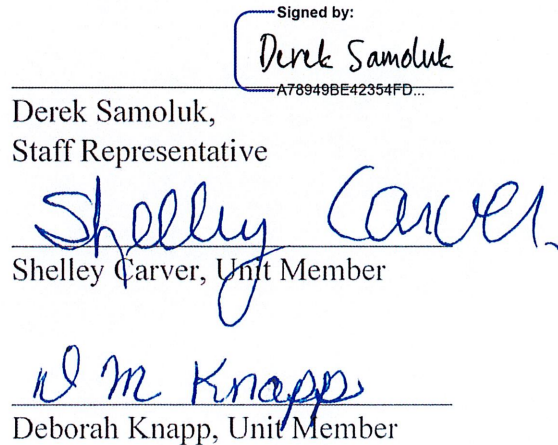 Signed by:
Derek Samoluk
A78949BE42354FD...
Derek Samoluk,
Staff Representative
Shelley Carver
Shelley Carver, Unit Member
D M Knapp
Deborah Knapp, Unit Member